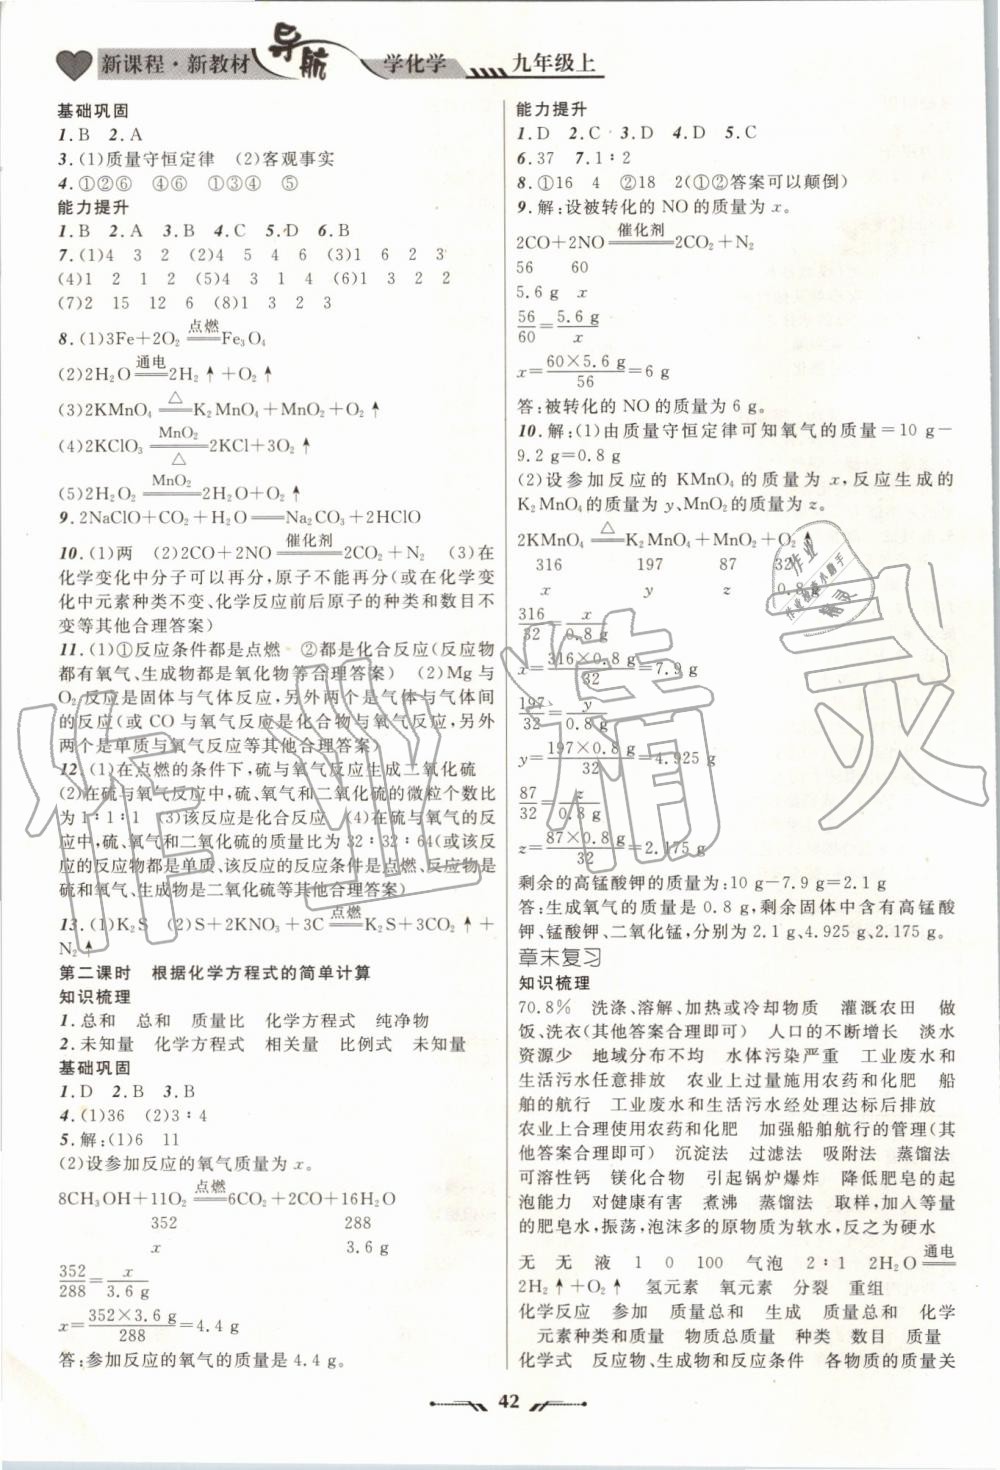 新课程·新教材 导航 学化学 九年级上
基础巩固
1.B 2.A
3.(1)质量守恒定律 (2)客观事实
4.①②⑥ ④⑥ ①③④ ⑤
能力提升
1.B 2.A 3.B 4.C 5.D 6.B
7.(1)4 3 2 (2)4 5 4 6 (3)1 6 2 3
(4)1 2 1 2 (5)4 3 1 4 (6)1 3 2 2
(7)2 15 12 6 (8)1 3 2 3
8.(1)3Fe+2O₂ 点燃══ Fe₃O₄
(2)2H₂O 通电══ 2H₂↑+O₂↑
(3)2KMnO₄ △══ K₂MnO₄+MnO₂+O₂↑
(4)2KClO₃ MnO₂══△ 2KCl+3O₂↑
(5)2H₂O₂ MnO₂══ 2H₂O+O₂↑
9.2NaClO+CO₂+H₂O══Na₂CO₃+2HClO
10.(1)两 (2)2CO+2NO 催化剂══ 2CO₂+N₂ (3)在
化学变化中分子可以再分,原子不能再分(在化学变
化中元素种类不变、化学反应前后原子的种类和数目不
变等其他合理答案)
11.(1)①反应条件都是点燃 ②都是化合反应(反应物
都有氧气、生成物都是氧化物等合理答案) (2)Mg与
O₂反应是固体与气体反应,另外两个是气体与气体间
的反应(或CO与氧气反应是化合物与氧气反应,另外
两个是单质与氧气反应等其他合理答案)
12.(1)在点燃的条件下,硫与氧气反应生成二氧化硫
(2)在硫与氧气反应中,硫、氧气和二氧化硫的微粒个数比
为1∶1∶1 (3)该反应是化合反应 (4)在硫与氧气的反
应中,硫、氧气和二氧化硫的质量比为32∶32∶64(或该反
应的反应物都是单质、该反应的反应条件是点燃、反应物是
硫和氧气、生成物是二氧化硫等其他合理答案)
13.(1)K₂S (2)S+2KNO₃+3C 点燃══ K₂S+3CO₂↑+
N₂↑
第二课时 根据化学方程式的简单计算
知识梳理
1.总和 总和 质量比 化学方程式 纯净物
2.未知量 化学方程式 相关量 比例式 未知量
基础巩固
1.D 2.B 3.B
4.(1)36 (2)3∶4
5.解:(1)6 11
(2)设参加反应的氧气质量为x。
8CH₃OH+11O₂ 点燃══ 6CO₂+2CO+16H₂O
352 288
x 3.6 g
352/288=x/3.6 g
x=352×3.6 g/288=4.4 g
答:参加反应的氧气的质量是4.4 g。
能力提升
1.D 2.C 3.D 4.D 5.C
6.37 7.1∶2
8.①16 4 ②18 2(①②答案可以颠倒)
9.解:设被转化的NO的质量为x。
2CO+2NO 催化剂══ 2CO₂+N₂
56 60
5.6 g x
56/60=5.6 g/x
x=60×5.6 g/56=6 g
答:被转化的NO的质量为6 g。
10.解:(1)由质量守恒定律可知氧气的质量=10 g-
9.2 g=0.8 g
(2)设参加反应的KMnO₄的质量为x,反应生成的
K₂MnO₄的质量为y、MnO₂的质量为z。
2KMnO₄ △══ K₂MnO₄+MnO₂+O₂↑
316 197 87 32
x y z 0.8 g
316/32=x/0.8 g
x=316×0.8 g/32=7.9 g
197/32=y/0.8 g
y=197×0.8 g/32=4.925 g
87/32=z/0.8 g
z=87×0.8 g/32=2.175 g
剩余的高锰酸钾的质量为:10 g-7.9 g=2.1 g
答:生成氧气的质量是0.8 g,剩余固体中含有高锰酸
钾、锰酸钾、二氧化锰,分别为2.1 g、4.925 g、2.175 g。
章末复习
知识梳理
70.8% 洗涤、溶解、加热或冷却物质 灌溉农田 做
饭、洗衣(其他答案合理即可) 人口的不断增长 淡水
资源少 地域分布不均 水体污染严重 工业废水和
生活污水任意排放 农业上过量施用农药和化肥 船
舶的航行 工业废水和生活污水经处理达标后排放
农业上合理使用农药和化肥 加强船舶航行的管理(其
他答案合理即可) 沉淀法 过滤法 吸附法 蒸馏法
可溶性钙 镁化合物 引起锅炉爆炸 降低肥皂的起
泡能力 对健康有害 煮沸 蒸馏法 取样,加入等量
的肥皂水,振荡,泡沫多的原物质为软水,反之为硬水
无 无 液 1 0 100 气泡 2∶1 2H₂O 通电══
2H₂↑+O₂↑ 氢元素 氧元素 分裂 重组
化学反应 参加 质量总和 生成 质量总和 化学
元素种类和质量 物质总质量 种类 数目 质量
化学式 反应物、生成物和反应条件 各物质的质量关
42
作业精灵
作业
作业检查小助手
精灵